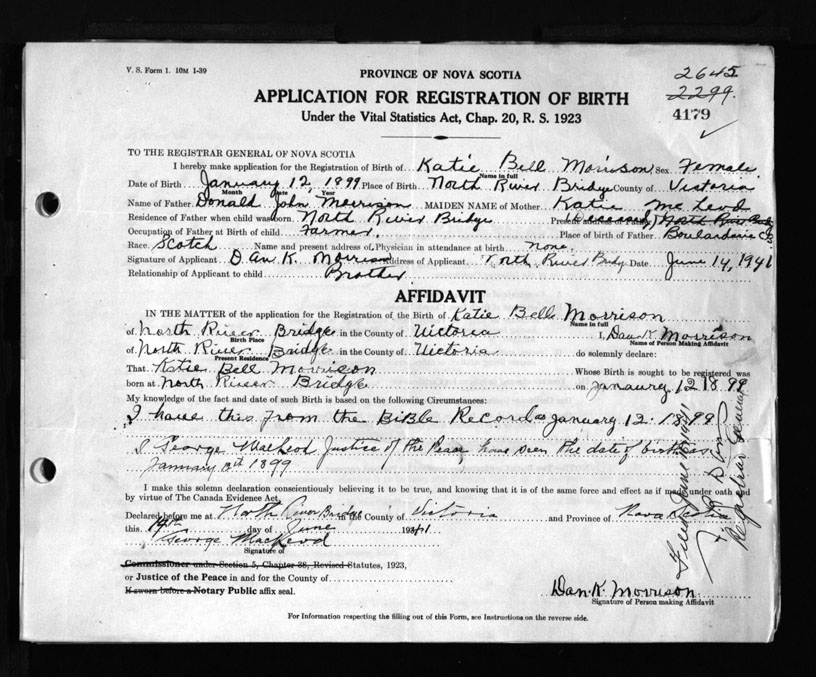 V. S. Form 1. 10M 1-39
PROVINCE OF NOVA SCOTIA
2645
2299.
APPLICATION FOR REGISTRATION OF BIRTH
4179
Under the Vital Statistics Act, Chap. 20, R. S. 1923
TO THE REGISTRAR GENERAL OF NOVA SCOTIA
I hereby make application for the Registration of Birth of Katie Bell Morrison Sex Female
Name in full
Date of Birth January 12, 1899 Place of Birth North River Bridge County of Victoria
Month Date Year
Name of Father Donald John Morrison MAIDEN NAME of Mother Katie McLeod
Residence of Father when child was born North River Bridge Present (Deceased) North River
Occupation of Father at Birth of child Farmer. Place of birth of Father Boulardarie C.B.
Race Scotch Name and present address of Physician in attendance at birth none.
Signature of Applicant Dan K. Morrison Address of Applicant North River Bridg Date June 14, 1941
Relationship of Applicant to child Brother
AFFIDAVIT
IN THE MATTER of the application for the Registration of the Birth of Katie Bell Morrison
Name in full
of North River Bridge in the County of Victoria I, Dan K Morrison
Birth Place Name of Person Making Affidavit
of North River Bridge in the County of Victoria do solemnly declare:
Present Residence
That Katie Bell Morrison Whose Birth is sought to be registered was
born at North River Bridge on Janaurey 12 1899
My knowledge of the fact and date of such Birth is based on the following Circumstances:
I have this from the Bible Record as January 12. 1899
I George MacLeod Justice of the Peace have seen the date of birth as
January 12th 1899
I make this solemn declaration conscientiously believing it to be true, and knowing that it is of the same force and effect as if made under oath and
by virtue of The Canada Evidence Act.
Declared before me at North River Bridge in the County of Victoria and Province of Nova Scotia
this 14th day of June 1941
George MacLeod
Signature of
Commissioner under Section 5, Chapter 38, Revised Statutes, 1923,
or Justice of the Peace in and for the County of
If sworn before a Notary Public affix seal.
Dan. K. Morrison
Signature of Person making Affidavit
For Information respecting the filling out of this Form, see Instructions on the reverse side.
Filed June
Registrar General